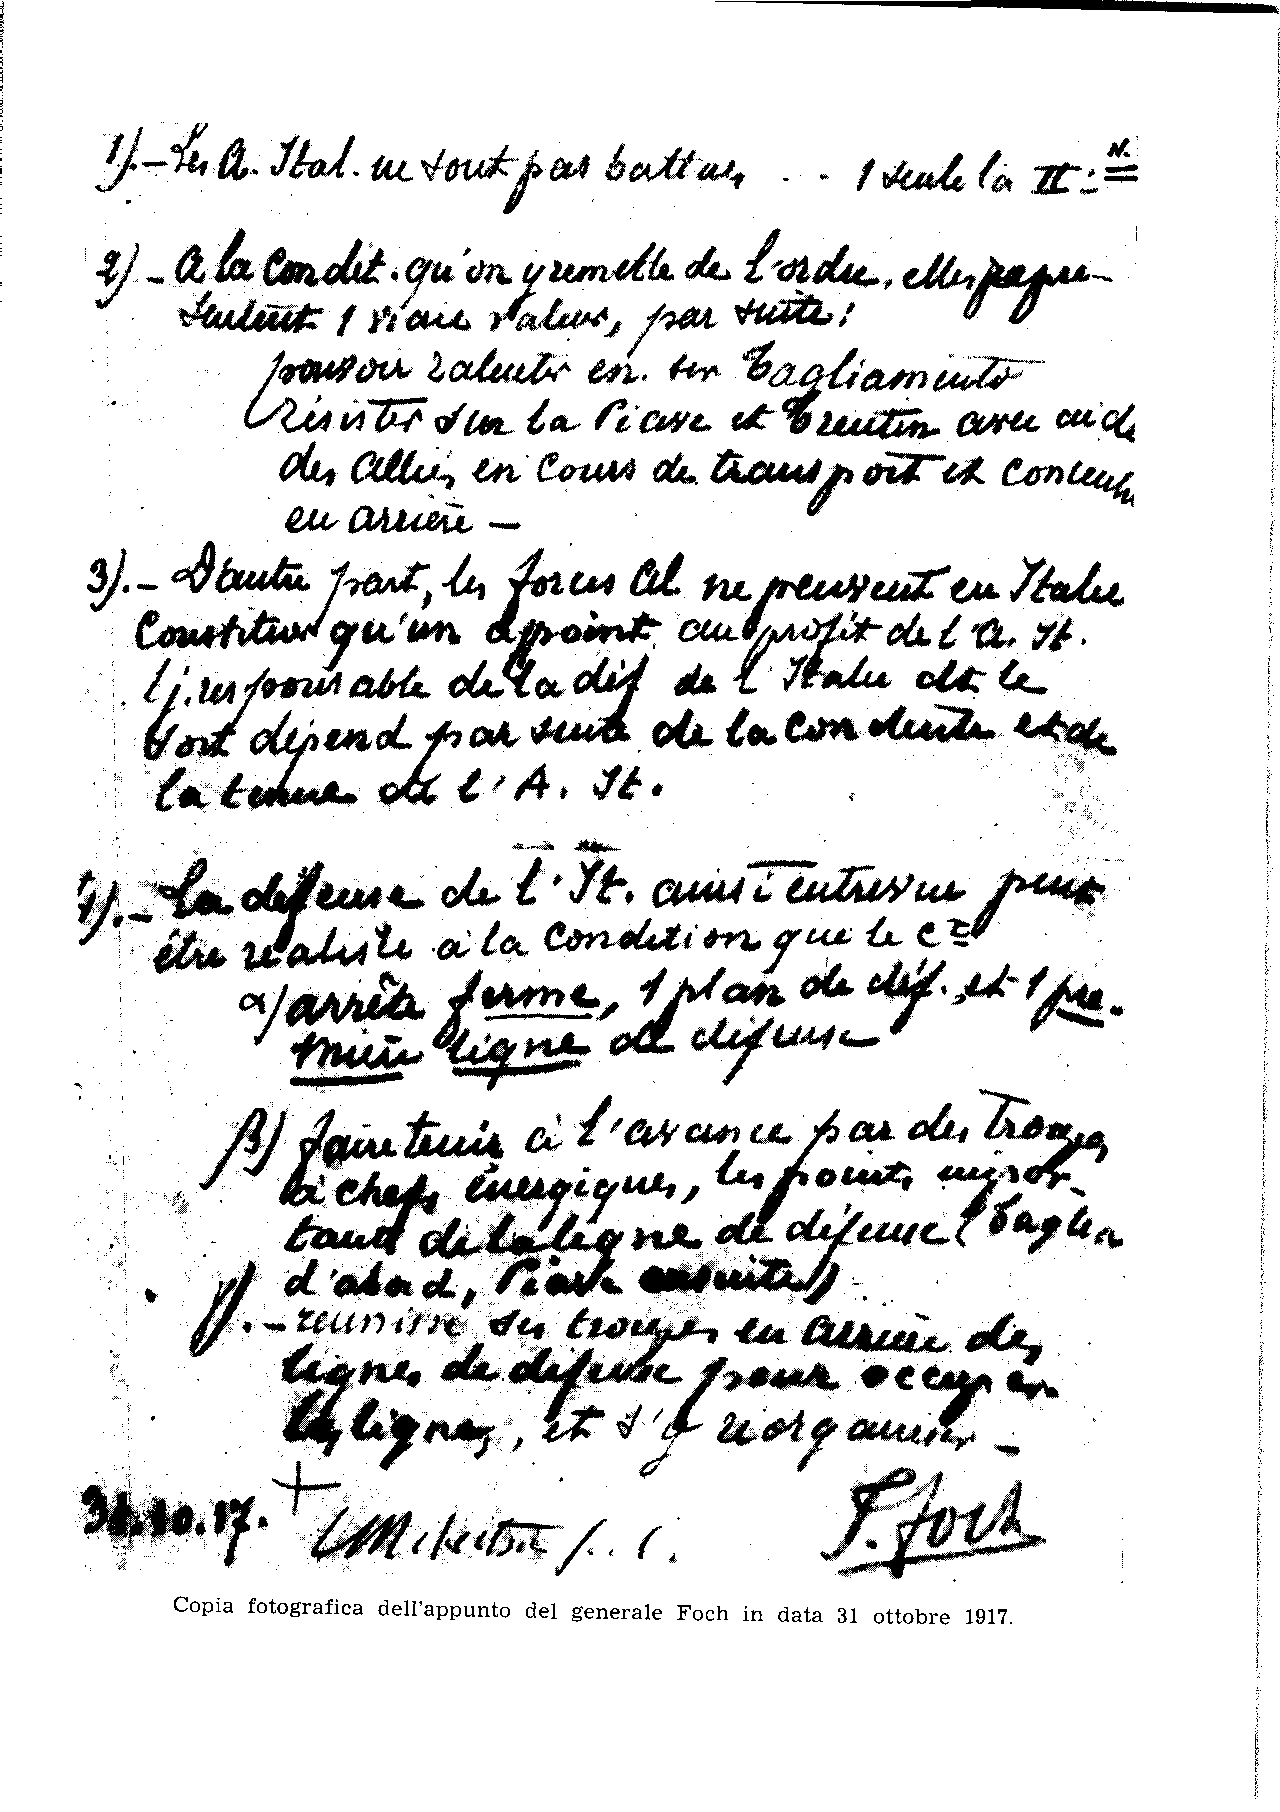 1).- Les A. Ital. ne sont pas battues . . 1 seule la II: N.
2) - A la condit. qu'on y remette de l'ordre, elles repré-
sentent 1 vraie valeur, par suite:
pouvoir ralentir en. sur Tagliamento
Résister sur la Piave et Trentin avec aide
des Alliés en cours de transport et
en arrière —
3).- D'autre part, les forces Al ne peuvent en Italie
Constituer qu'un apoint au profit de l'A. It.
tj. responsable de la déf de l'Italie dt le
sort dépend par suite de la conduite et de
la tenue de l'A. It.
4).- La défense de l'It. ainsi entrevue peut
être réalisée à la condition que le ct
α) arrête ferme, 1 plan de déf., et 1 pre-
mière ligne de défense
β) faire tenir à l'avance par des troupes
à chefs énergiques, les points impor-
tants de la ligne de défense (Taglia
d'abord, Piave ensuite)
γ).- réunisse ses troupes en arrière des
lignes de défense pour occuper
les lignes, et s'y réorganiser —
31.10.17. F. Foch
Copia fotografica dell'appunto del generale Foch in data 31 ottobre 1917.